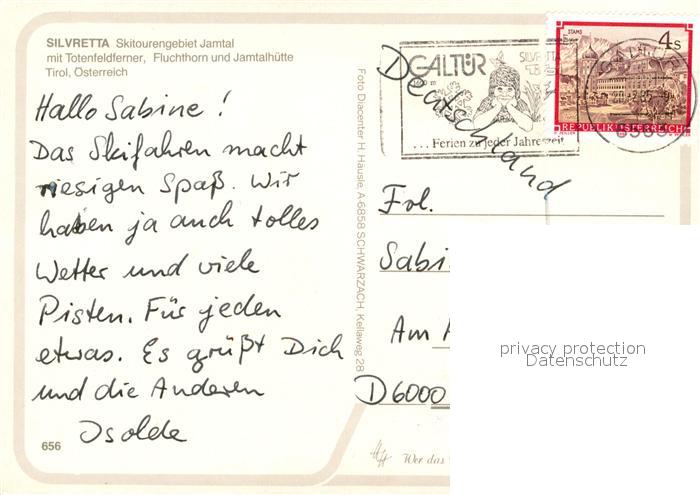 SILVRETTA Skitourengebiet Jamtal
mit Totenfeldferner, Fluchthorn und Jamtalhütte
Tirol, Österreich
Hallo Sabine!
Das Skifahren macht
riesigen Spaß. Wir
haben ja auch tolles
Wetter und viele
Pisten. Für jeden
etwas. Es grüßt Dich
und die Anderen
Isolde
656
Foto Diacenter H. Häusle, A-6858 SCHWARZACH, Kellaweg 28
GALTÜR
... Ferien zu jeder Jahreszeit
STAMS
4s
REPUBLIK ÖSTERREICH
Deutschland
Frl.
Sabi
Am
D 6000
Wer das
privacy protection
Datenschutz